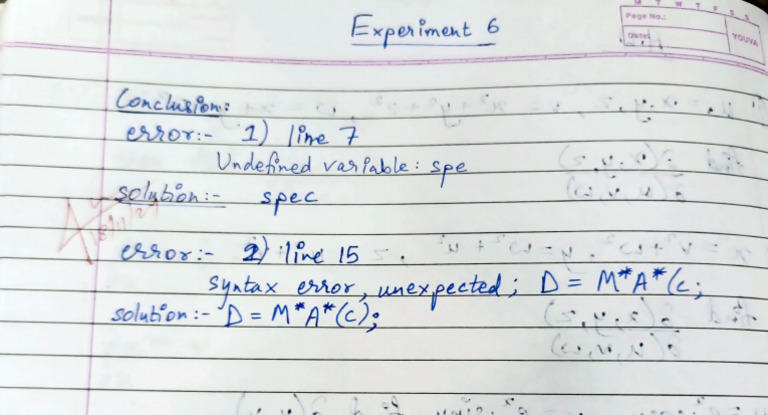 M T W T F S S
Page No.:
Date:
YOUVA
Experiment 6
Conclusion:
error:- 1) line 7
Undefined variable: spe
solution:- spec
error:- 2) line 15
syntax error, unexpected; D = M*A*(c;
solution:- D = M*A*(c);